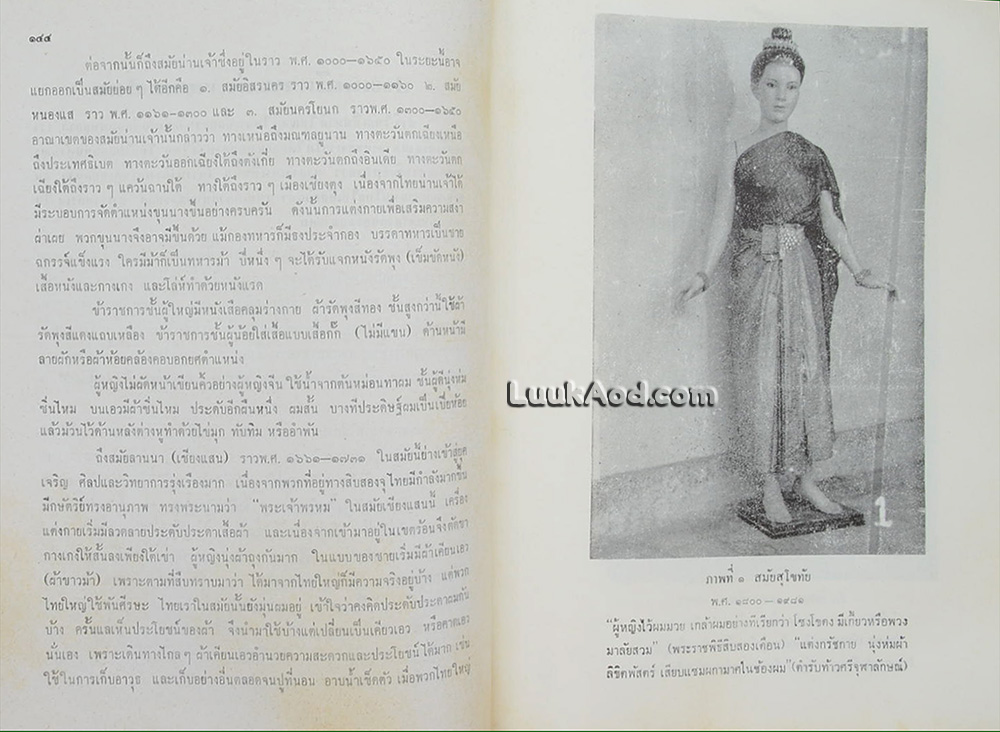 ๑๔๔
ต่อจากนั้นก็ถึงสมัยน่านเจ้าซึ่งอยู่ในราว พ.ศ. ๑๐๐๐—๑๖๕๐ ในระยะนี้อาจ
แยกออกเป็นสมัยย่อย ๆ ได้อีกคือ ๑. สมัยอิสรนคร ราว พ.ศ. ๑๐๐๐—๑๑๖๐ ๒. สมัย
หนองแส ราว พ.ศ. ๑๑๖๑—๑๓๐๐ และ ๓. สมัยนครโยนก ราวพ.ศ. ๑๓๐๐—๑๖๕๐
อาณาเขตของสมัยน่านเจ้านั้นกล่าวว่า ทางเหนือถึงมณฑลยูนาน ทางตะวันตกเฉียงเหนือ
ถึงประเทศธิเบต ทางตะวันออกเฉียงใต้ถึงตังเกี๋ย ทางตะวันตกถึงอินเดีย ทางตะวันตก
เฉียงใต้ถึงราว ๆ แคว้นฉานใต้ ทางใต้ถึงราว ๆ เมืองเชียงตุง เนื่องจากไทยน่านเจ้าได้
มีระบอบการจัดตำแหน่งขุนนางขึ้นอย่างครบครัน ดังนั้นการแต่งกายเพื่อเสริมความสง่า
ผ่าเผย พวกขุนนางจึงอาจมีขึ้นด้วย แม้กองทหารก็มีธงประจำกอง บรรดาทหารเป็นชาย
ฉกรรจ์แข็งแรง ใครมีม้าก็เป็นทหารม้า ปีหนึ่ง ๆ จะได้รับแจกหนังรัดพุง (เข็มขัดหนัง)
เสื้อหนังและกางเกง และโล่ห์ทำด้วยหนังแรด
ข้าราชการชั้นผู้ใหญ่มีหนังเสือคลุมร่างกาย ผ้ารัดพุงสีทอง ชั้นสูงกว่านี้ใช้ผ้า
รัดพุงสีแดงแถบเหลือง ข้าราชการชั้นผู้น้อยใส่เสื้อแบบเสื้อกั๊ก (ไม่มีแขน) ด้านหน้ามี
ลายผักหรือผ้าห้อยคล้องคอบอกยศตำแหน่ง
ผู้หญิงไม่ผัดหน้าเขียนคิ้วอย่างผู้หญิงจีน ใช้น้ำจากต้นหม่อนทาผม ชั้นผู้ดีนุ่งห่ม
ซิ่นไหม บนเอวมีผ้าซิ่นไหม ประดับอีกผืนหนึ่ง ผมสั้น บางทีประดิษฐ์ผมเป็นเปียห้อย
แล้วม้วนไว้ด้านหลังต่างหูทำด้วยไข่มุก ทับทิม หรืออำพัน
ถึงสมัยลานนา (เชียงแสน) ราวพ.ศ. ๑๖๖๑—๑๗๓๑ ในสมัยนี้ย่างเข้าสู่ยุค
เจริญ ศิลปและวิทยาการรุ่งเรืองมาก เนื่องจากพวกที่อยู่ทางสิบสองจุไทยมีกำลังมากขึ้น
มีกษัตริย์ทรงอานุภาพ ทรงพระนามว่า “พระเจ้าพรหม” ในสมัยเชียงแสนนี้ เครื่อง
แต่งกายเริ่มมีลวดลายประดับประดาเสื้อผ้า และเนื่องจากเข้ามาอยู่ในเขตร้อนจึงตัดขา
กางเกงให้สั้นลงเพียงใต้เข่า ผู้หญิงนุ่งผ้าถุงกันมาก ในแบบของชายเริ่มมีผ้าเคียนเอว
(ผ้าขาวม้า) เพราะตามที่สืบทราบมาว่า ได้มาจากไทยใหญ่ก็มีความจริงอยู่บ้าง แต่พวก
ไทยใหญ่ใช้พันศีรษะ ไทยเราในสมัยนั้นยังมุ่นผมอยู่ เข้าใจว่าคงคิดประดับประดาผมกัน
บ้าง ครั้นแลเห็นประโยชน์ของผ้า จึงนำมาใช้บ้างแต่เปลี่ยนเป็นเคียนเอว หรือคาดเอว
นั่นเอง เพราะเดินทางไกล ๆ ผ้าเคียนเอวอำนวยความสะดวกและประโยชน์ได้มาก เช่น
ใช้ในการเก็บอาวุธ และเก็บอย่างอื่นตลอดจนปูที่นอน อาบน้ำเช็ดตัว เมื่อพวกไทยใหญ่
LuukAod.com
1
ภาพที่ ๑ สมัยสุโขทัย
พ.ศ. ๑๘๐๐—๑๙๘๑
“ผู้หญิงไว้ผมมวย เกล้าผมอย่างที่เรียกว่า โซงโขดง มีเกี้ยวหรือพวง
มาลัยสวม” (พระราชพิธีสิบสองเดือน) “แต่งกรัชกาย นุ่งห่มผ้า
ลิขิตพัสตร์ เสียบแซมผกามาศในช้องผม”(ตำรับท้าวศรีจุฬาลักษณ์)